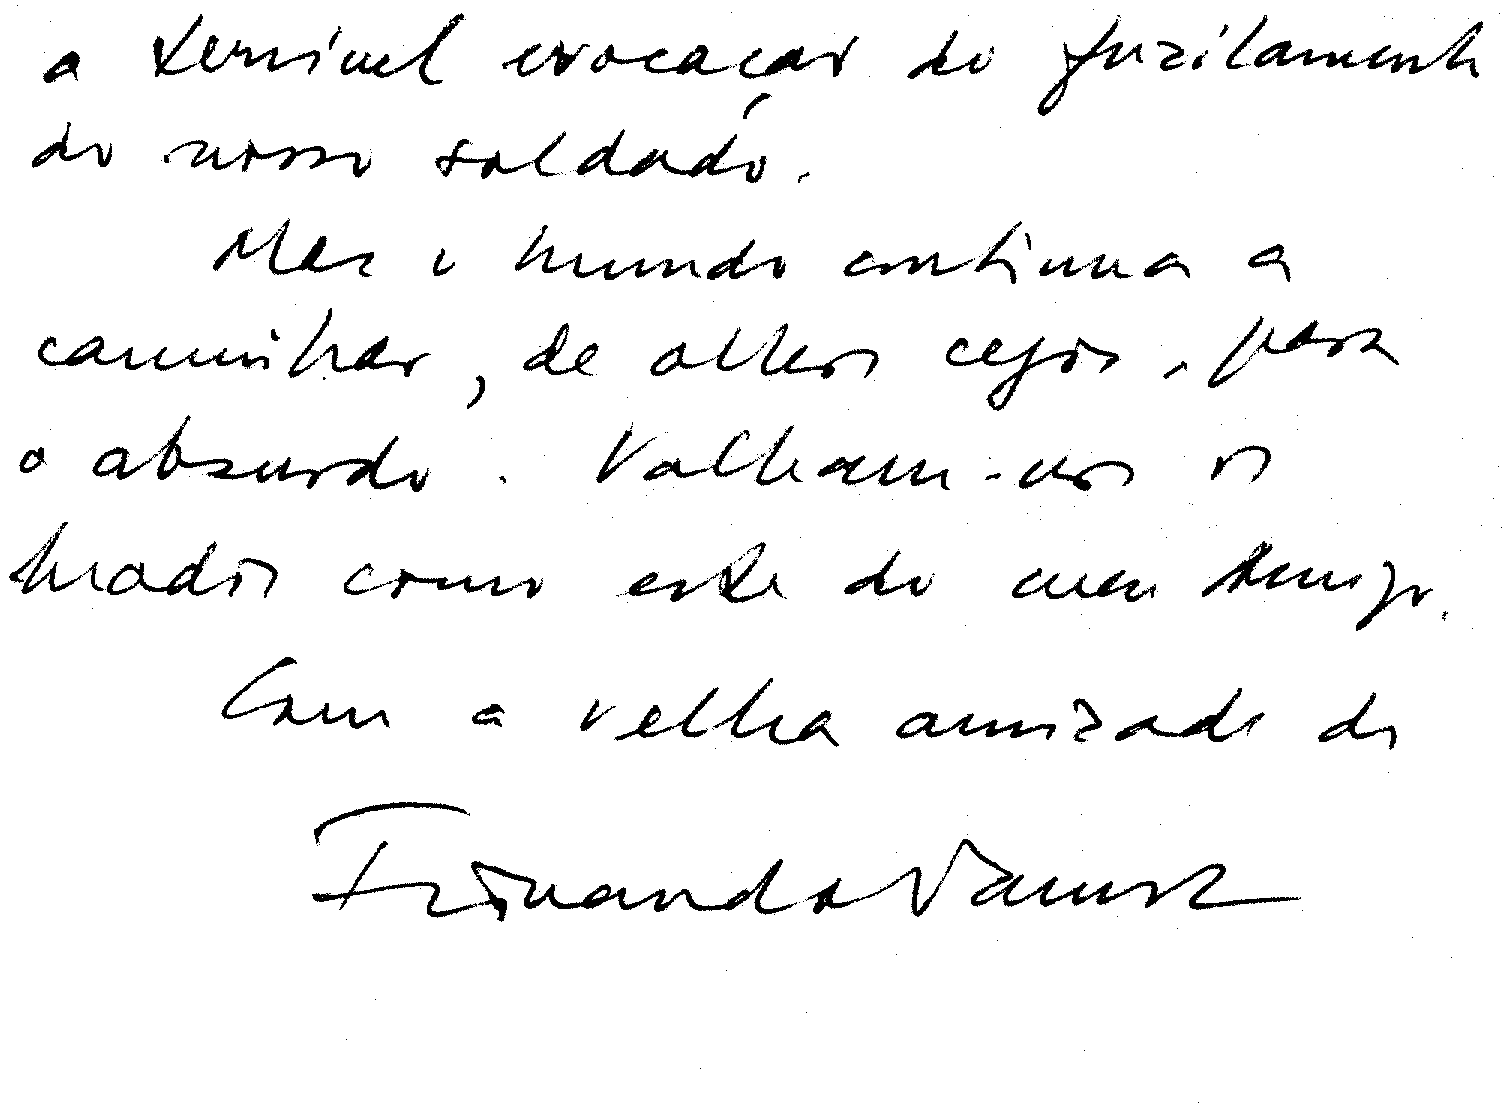 a terrível evocação do fuzilamento
do nosso soldado.
Mas o mundo continua a
caminhar, de olhos cegos, para
o absurdo. Valham-nos os
brados como este do meu Amigo.
Com a velha amizade de
Fernando Namora